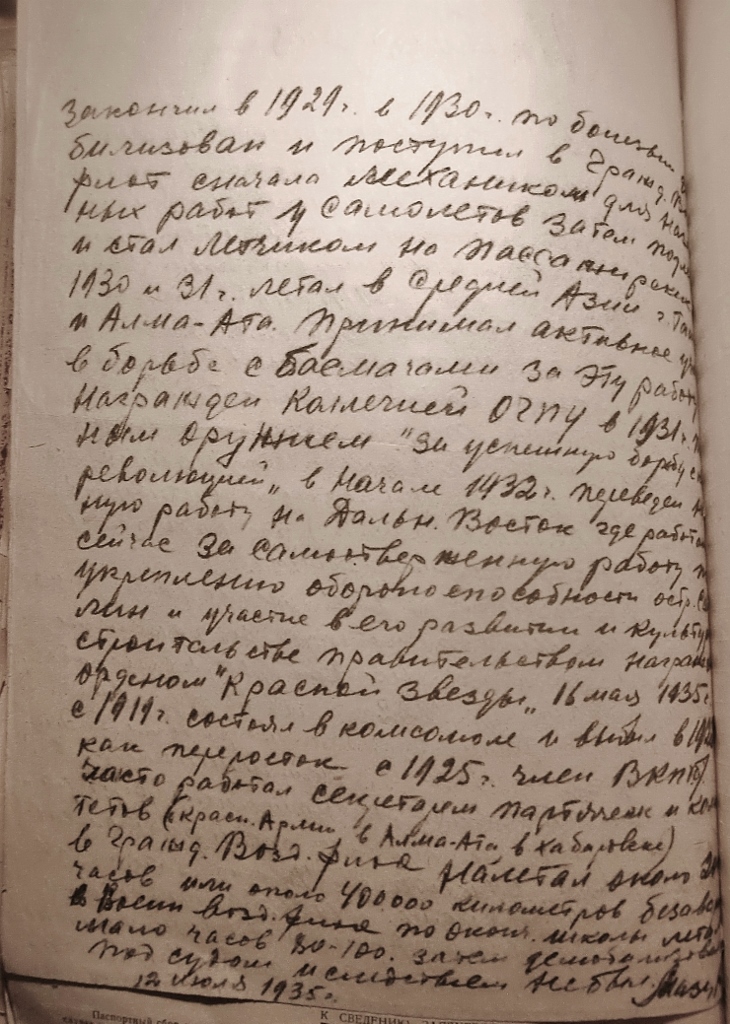 закончил в 1929г. в 1930г. по болезни
билизован и поступил в Гражд.
флот сначала механиком для
ных работ у самолетов затем
и стал летчиком на пассажирских
1930 и 31г. летал в Средней Азии г.
и Алма-Ата. Принимал активное
в борьбе с басмачами за эту работу
награжден Коллегией ОГПУ в 1931г.
ным оружием "за успешную борьбу с
революцией„ в начале 1932г. переведен
ную работу на Дальн. Восток где
сейчас за самоотверженную работу
укреплению обороноспособности остр.
лин и участие в его развитии и
строительстве правительством
орденом "Красной Звезды„ 16 мая 1935г
с 1919г. состоял в комсомоле и выбыл в
как переросток с 1925г. член ВКП(б)
часто работал секретарем партячеек и
тетов (Красн. Армии в Алма-Ата в Хабаровске)
в Гражд. Возд. флоте налетал около
часов или около 400000 километров
в Воен. возд. флоте по оконч. школы
мало часов 80-100. затем
под судом и следствием не был.
12 июля 1935г.
Паспортный
К СВЕДЕНИЮ